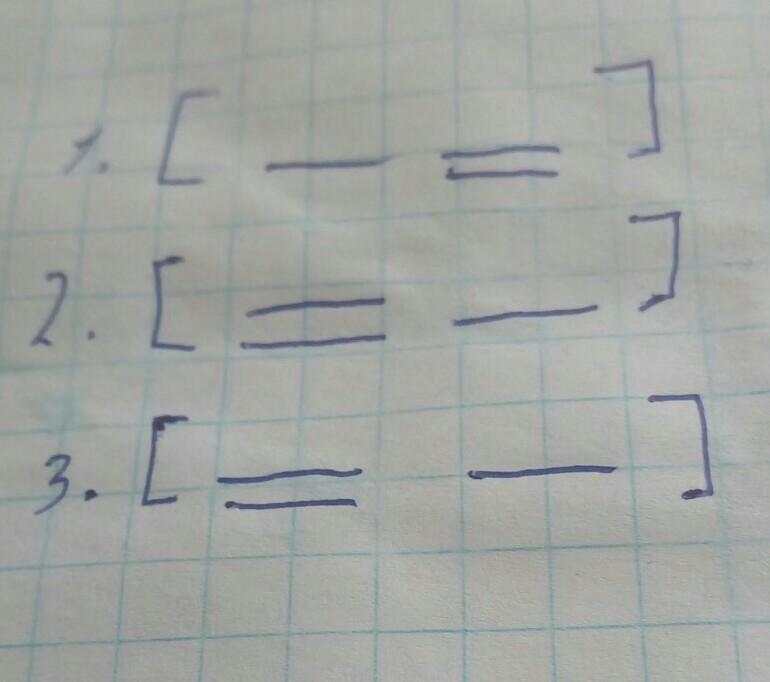 1. [ — = ]
2. [ = — ]
3. [ = — ]